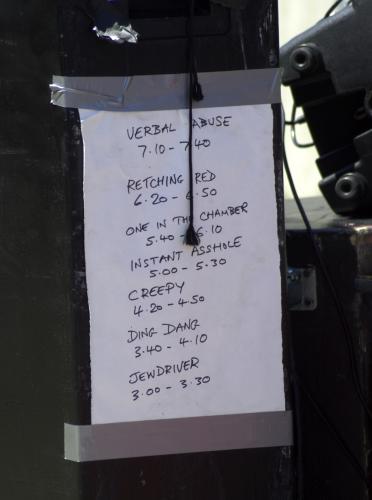 VERBAL ABUSE
7.10 - 7.40
RETCHING RED
6.20 - 6.50
ONE IN THE CHAMBER
5.40 - 6.10
INSTANT ASSHOLE
5.00 - 5.30
CREEPY
4.20 - 4.50
DING DANG
3.40 - 4.10
JEWDRIVER
3.00 - 3.30